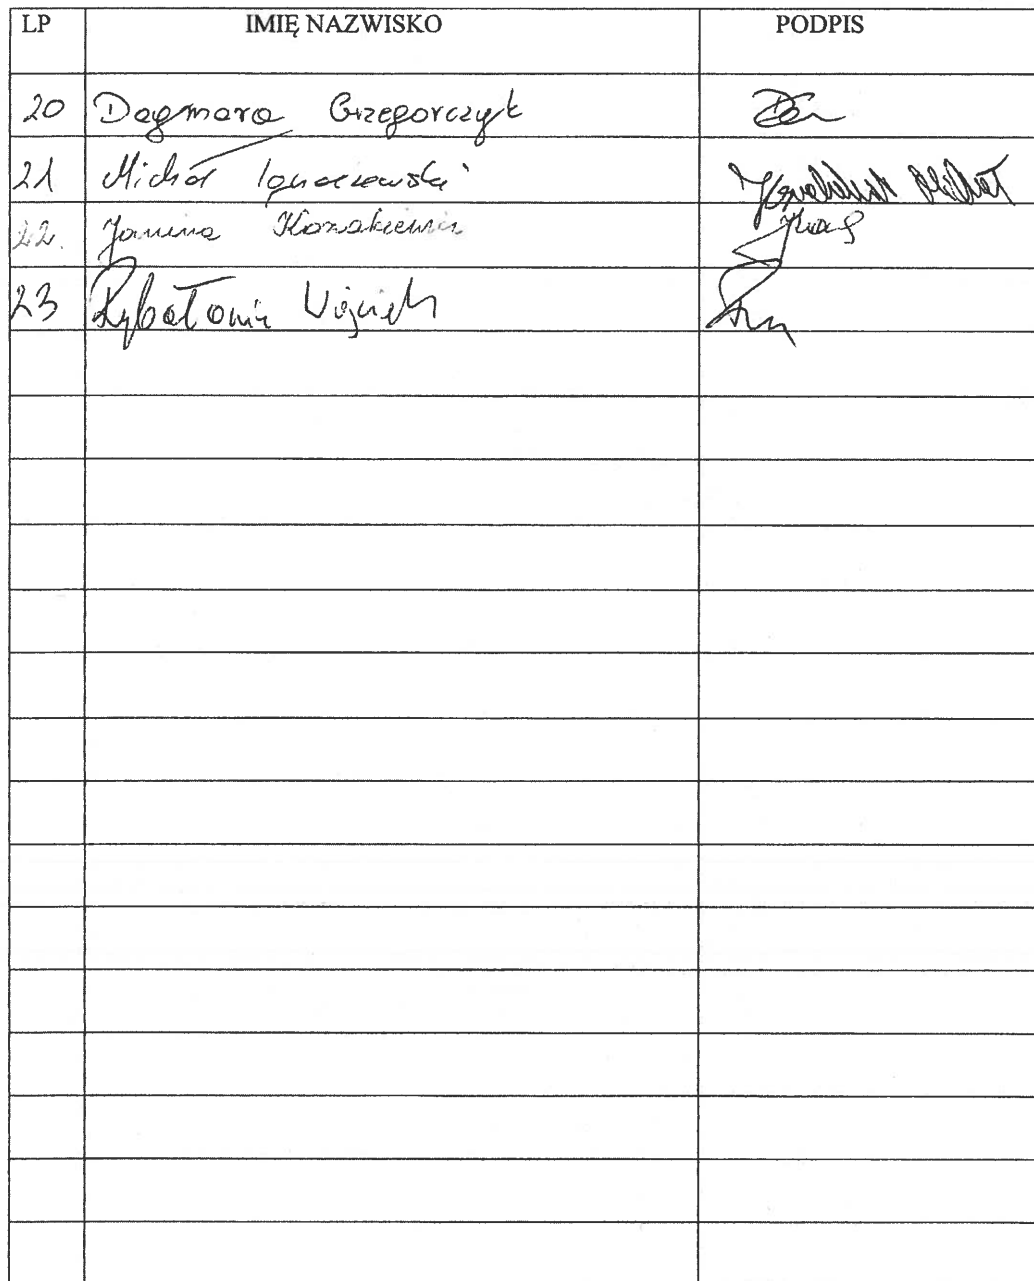 LP IMIĘ NAZWISKO PODPIS
20 Dagmara Grzegorczyk
21 Michał Ignaczewski Michał
22. Janina Kozakiewicz
23 Rybałowic Wojciech